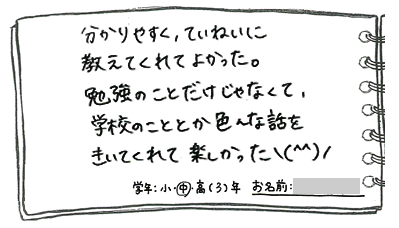 分かりやすく,ていねいに
教えてくれてよかった。
勉強のことだけじゃなくて、
学校のこととか色んな話を
きいてくれて楽しかった\(^^)/
学年:小・中・高(3)年 お名前: